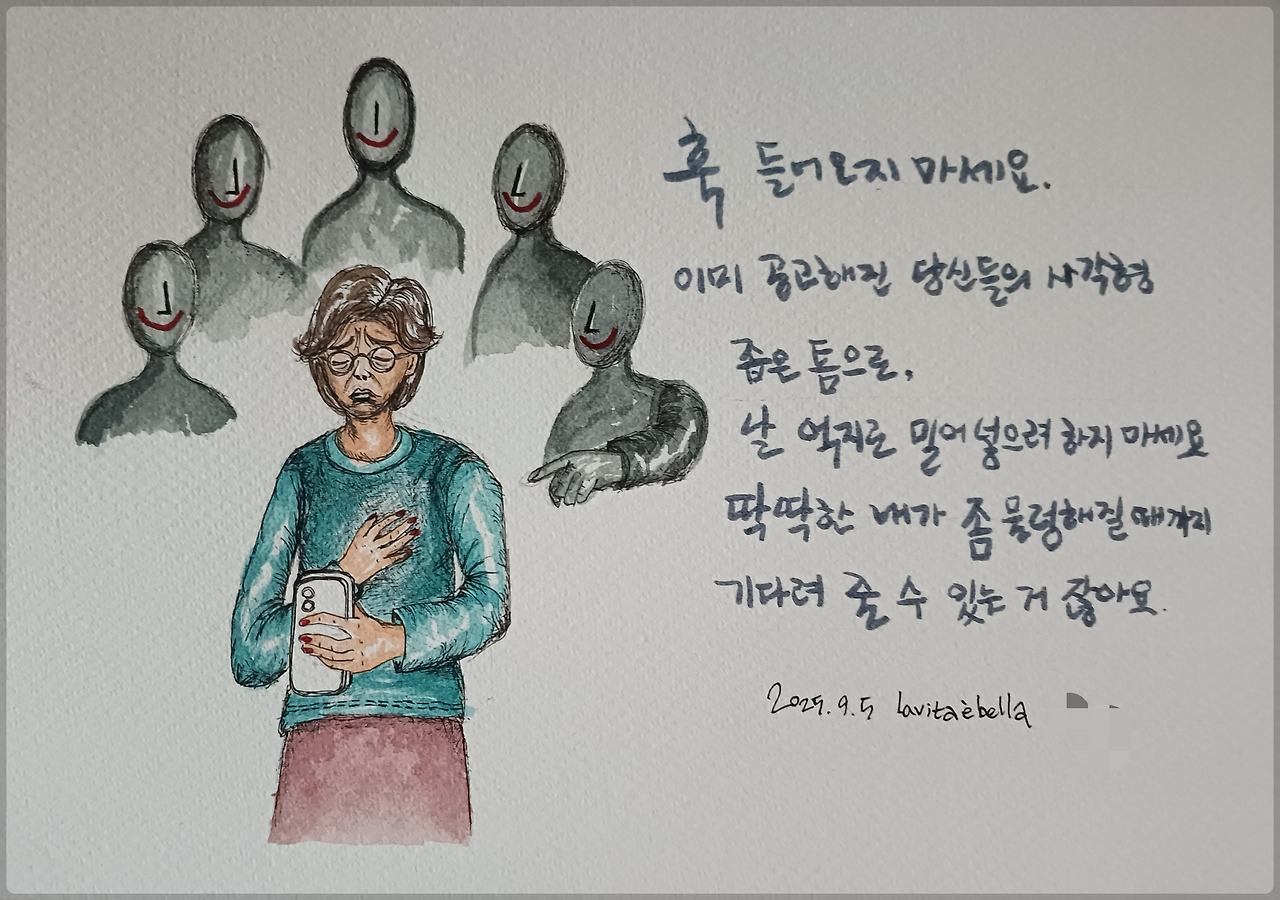 훅 들어오지 마세요.
이미 공고해진 당신들의 사각형
좁은 톰으로,
날 억지로 밀어 넣으려 하지 마세요
딱딱한 내가 좀 물렁해질 때까지
기다려 줄 수 있는 거 잖아요.
2025.9.5 lavitaèbella